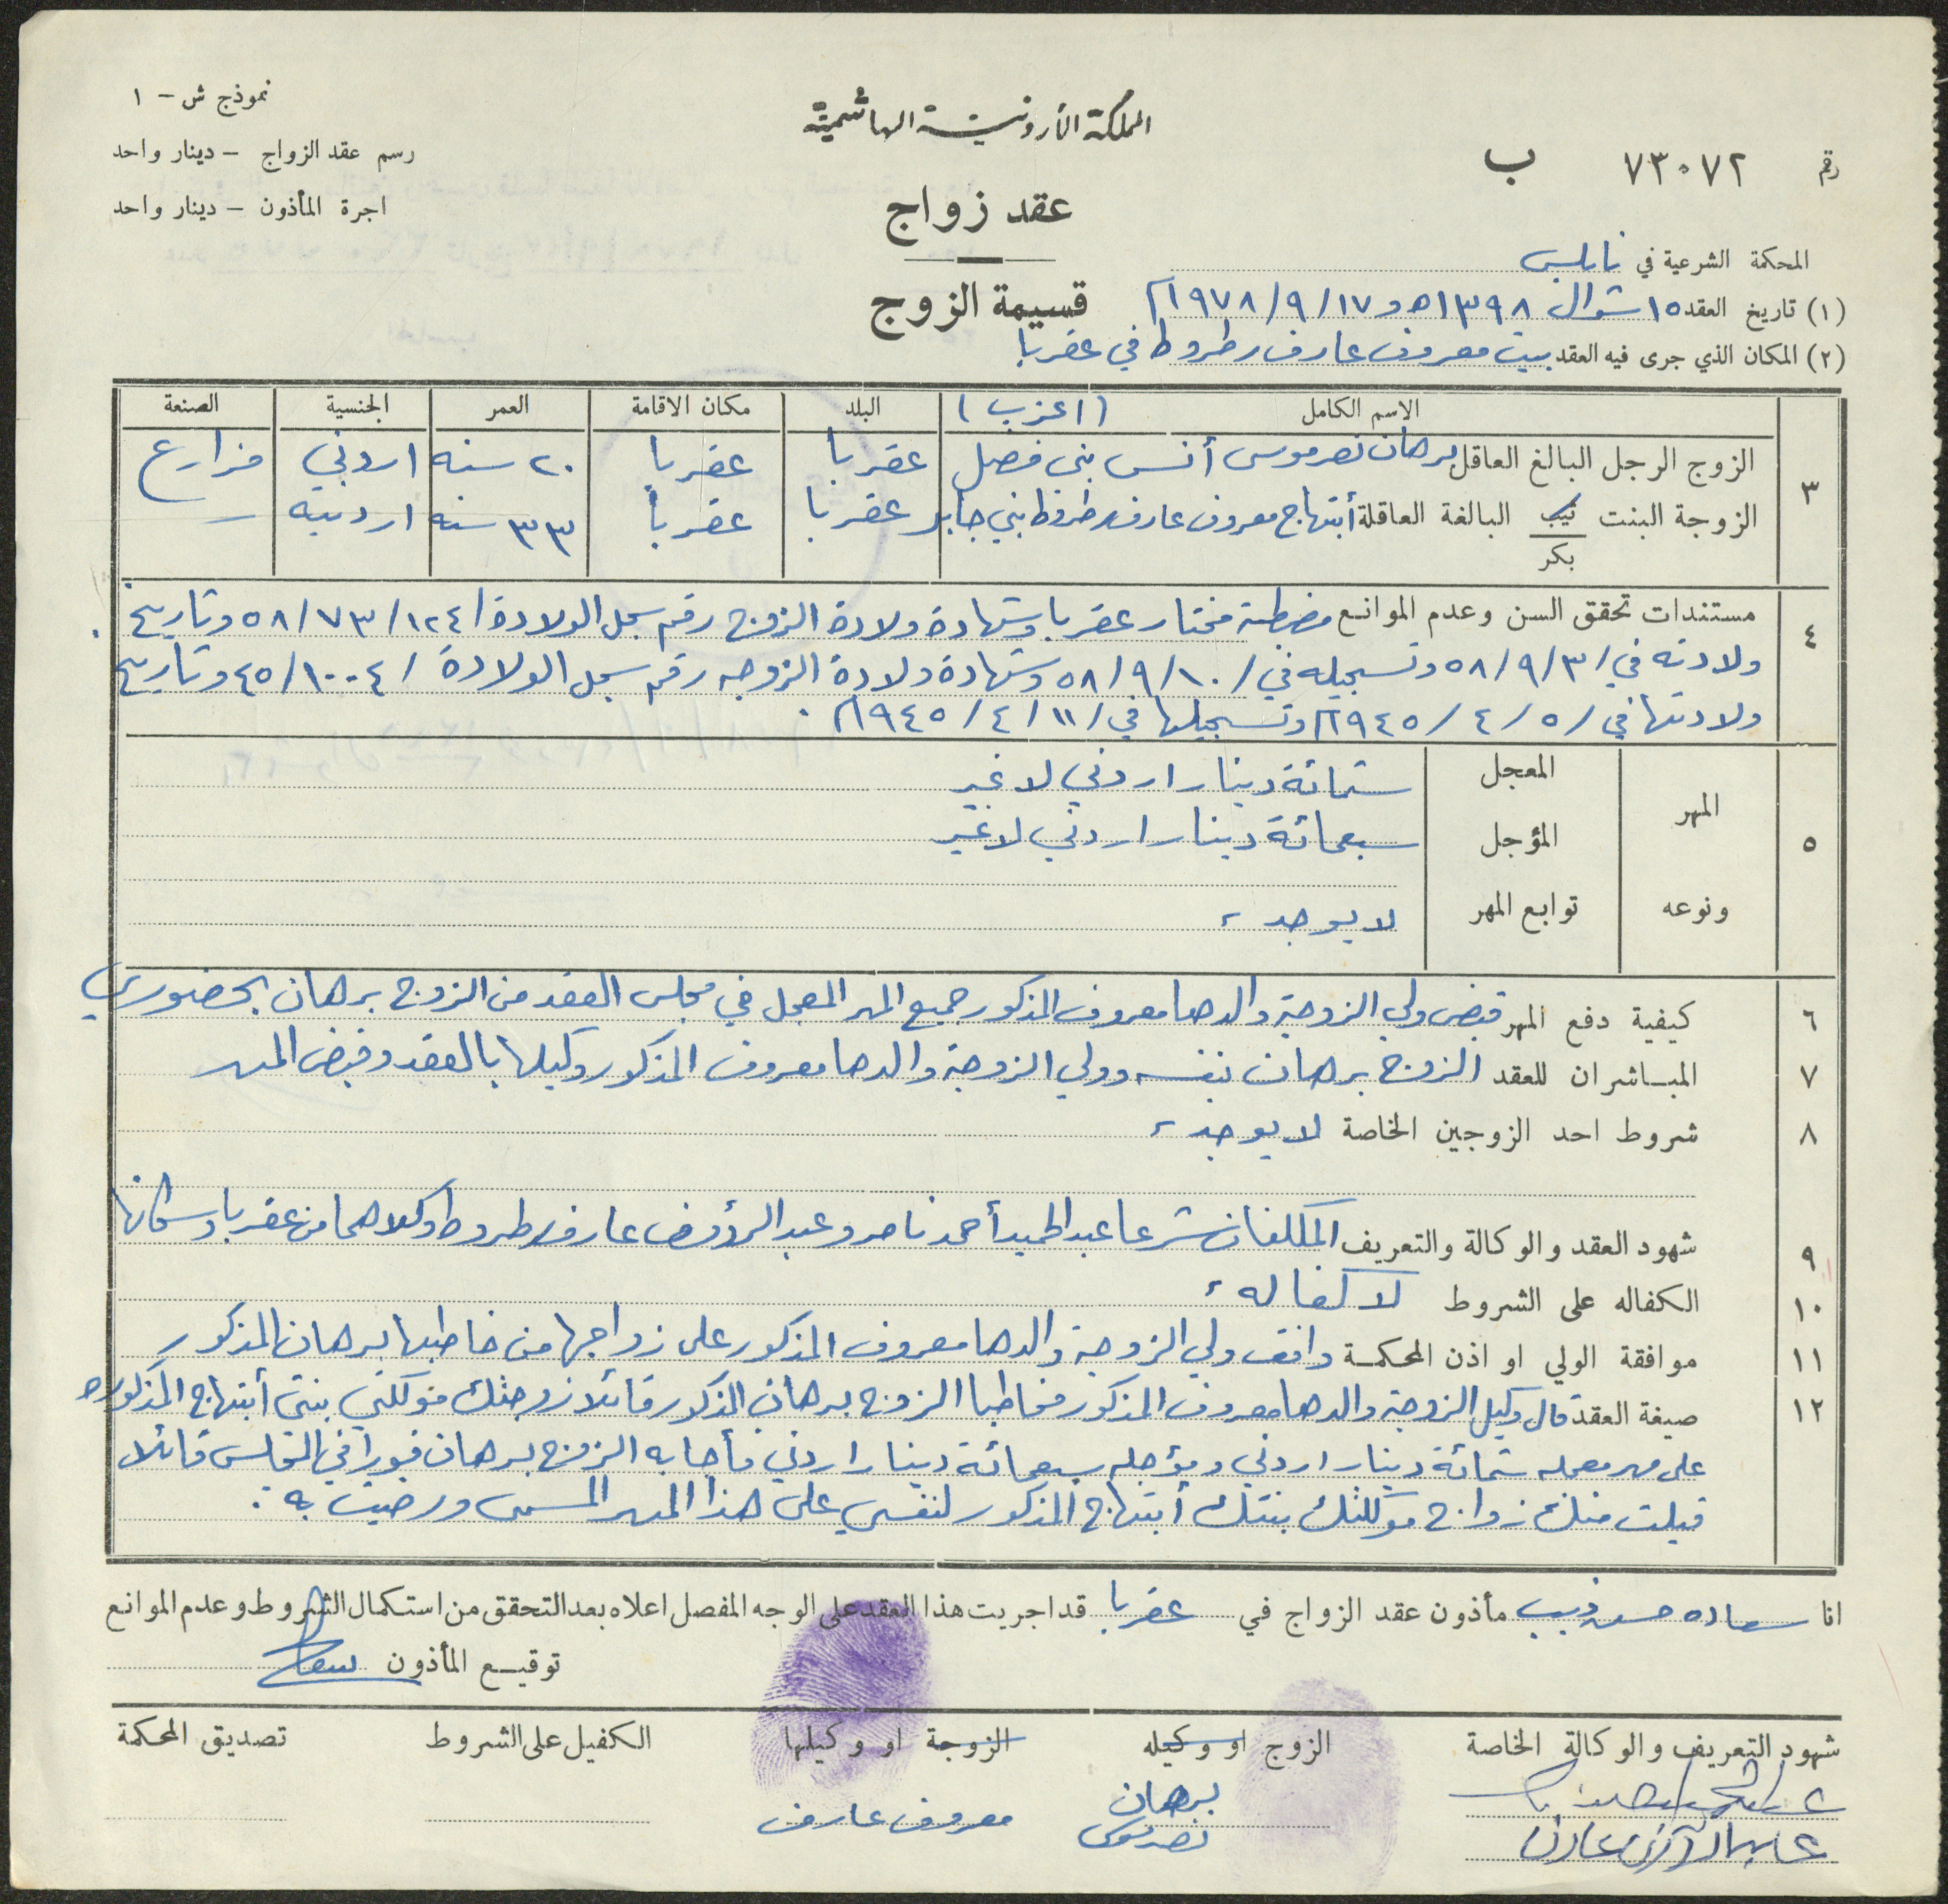 نموذج ش - ١
رسم عقد الزواج - دينار واحد
اجرة المأذون - دينار واحد
المملكة الأردنية الهاشمية
عقد زواج
قسيمة الزوج
رقم ٧٣٠٧٢ ب
المحكمة الشرعية في نابلس
(١) تاريخ العقد ١٥ شوال ١٣٩٨هـ و ١٧/٩/١٩٧٨م
(٢) المكان الذي جرى فيه العقد بيت معروف عارف طروط في عقربا
الاسم الكامل (اعزب) البلد مكان الاقامة العمر الجنسية الصنعة
٣
الزوج الرجل البالغ العاقل برهان نصر موسى أنس بني فضل عقربا عقربا ٢٠ سنه اردني مزارع
الزوجة البنت ثيب البالغة العاقلة أبتهاج معروف عارف طروط بني جابر عقربا عقربا ٣٣ سنه اردنيه -
بكر
٤ مستندات تحقق السن وعدم الموانع مضبطة مختار عقربا وشهادة ولادة الزوج رقم سجل الولادة / ١٢٤/٧٣/٥٨ وتاريخ
ولادته في / ٣/٩/٥٨ وتسجيله في / ١٠/٩/٥٨ وشهادة ولادة الزوجه رقم سجل الولادة / ١٠٠٤/٤٥ وتاريخ
ولادتها في / ٥/٤/١٩٤٥م وتسجيلها في / ١١/٤/١٩٤٥م .
٥ المهر ونوعه
المعجل ستمائة دينار اردني لا غير
المؤجل سبعمائة دينار اردني لا غير
توابع المهر لا يوجد ،
٦ كيفية دفع المهر قبض ولي الزوجة والدها معروف المذكور جميع المهر المعجل في مجلس العقد من الزوج برهان بحضوري
٧ المباشران للعقد الزوج برهان بنفسه وولي الزوجة والدها معروف المذكور وكيلها بالعقد وقبض المهر
٨ شروط احد الزوجين الخاصة لا يوجد ،
٩ شهود العقد والوكالة والتعريف المكلفان شرعا عبد الحميد أحمد ناصر وعبد الرؤوف عارف طروط وكلاهما من عقربا وسكانها
١٠ الكفاله على الشروط لا كفاله ،
١١ موافقة الولي او اذن المحكمة وافق ولي الزوجة والدها معروف المذكور على زواجها من خاطبها برهان المذكور
١٢ صيغة العقد قال وكيل الزوجة والدها معروف المذكور مخاطبا الزوج برهان المذكور قائلا زوجتك موكلتي بنتي أبتهاج المذكوره
على مهر معجله ستمائة دينار اردني ومؤجله سبعمائة دينار اردني فأجابه الزوج برهان فورا في المجلس قائلا
قبلت منك زواج موكلتك بنتك أبتهاج المذكور لنفسي على هذا المهر المسمى ورضيت به .
انا سعاده حسن ذيب مأذون عقد الزواج في عقربا قد اجريت هذا العقد على الوجه المفصل اعلاه بعد التحقق من استكمال الشروط وعدم الموانع
توقيع المأذون
شهود التعريف والوكالة الخاصة الزوج او وكيله الزوجة او وكيلها الكفيل على الشروط تصديق المحكمة
برهان معروف عارف
نصر موسى
عبد الرؤوف عارف